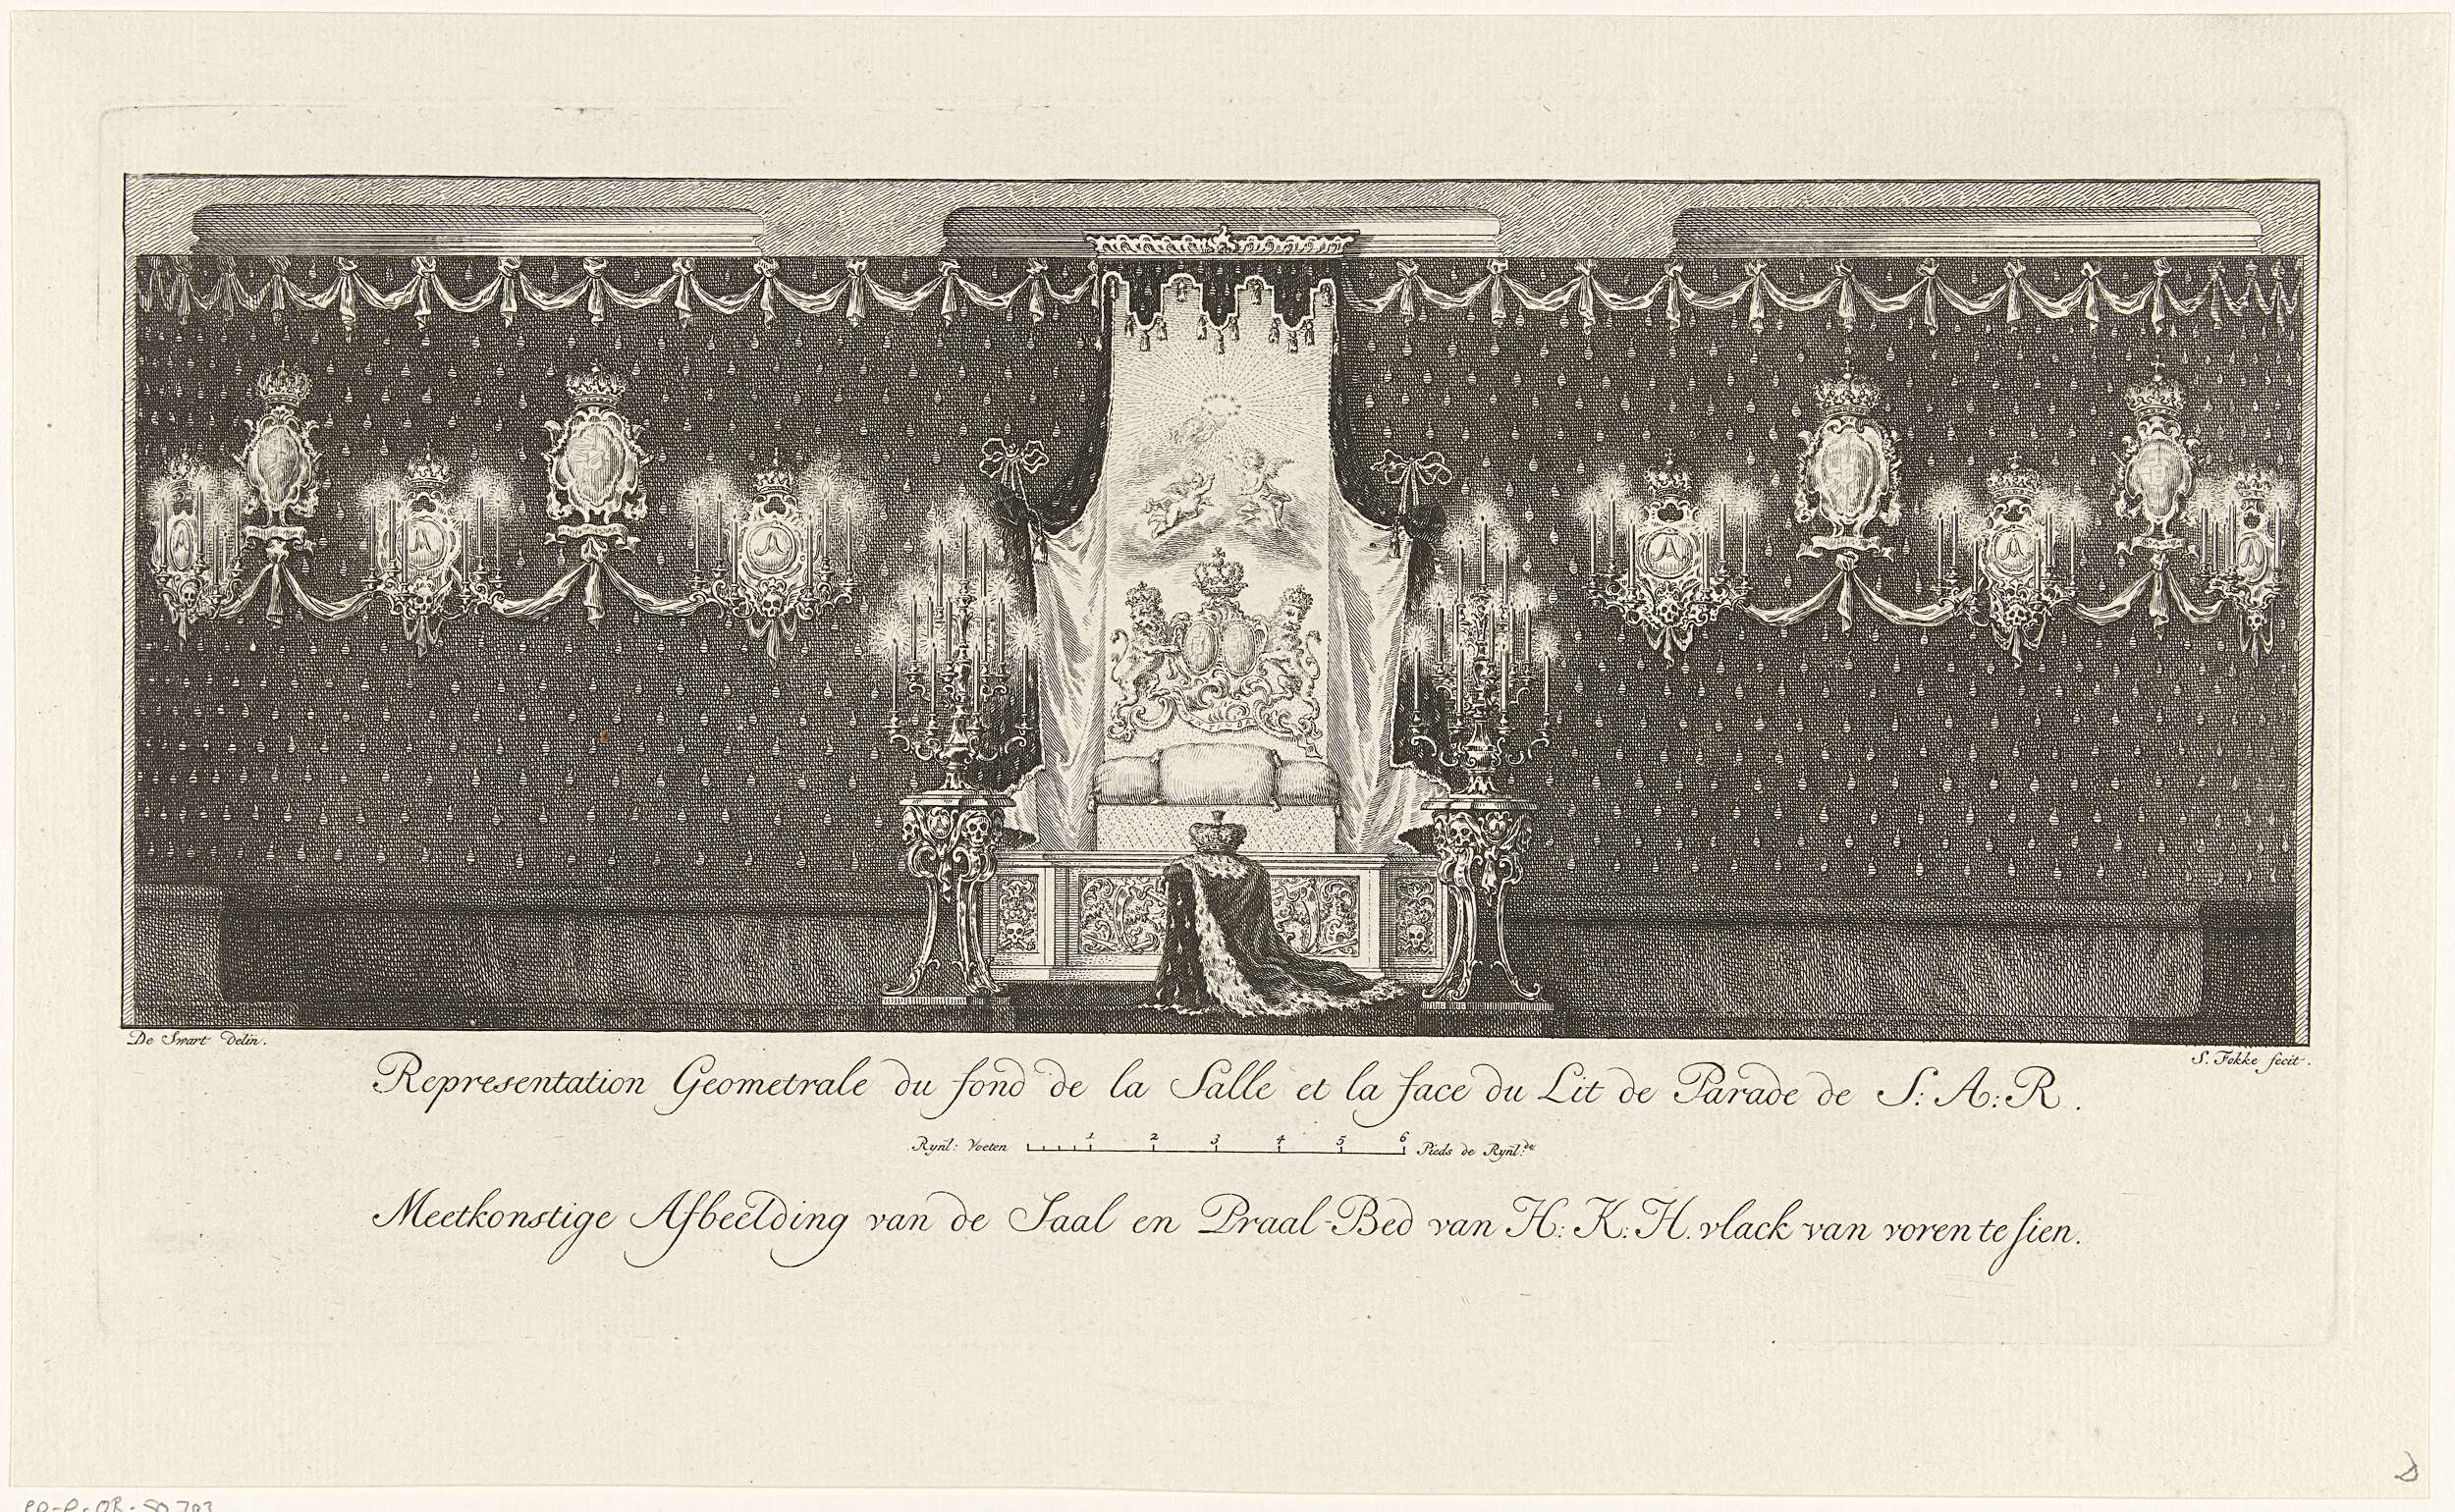 De Swart Delin.
S. Fokke fecit.
Representation Geometrale du fond de la Salle et la face du Lit de Parade de S: A: R.
Rynl: Voeten 1 2 3 4 5 6 Pieds de Rynl:de
Meetkonstige Afbeelding van de Saal en Praal-Bed van H: K: H. vlack van voren te sien.